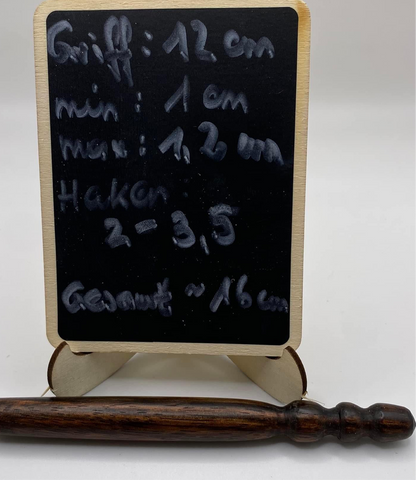 Griff: 12 cm
min: 1 cm
max: 1,2 cm
Haken
2-3,5
Gesamt ~ 16 cm